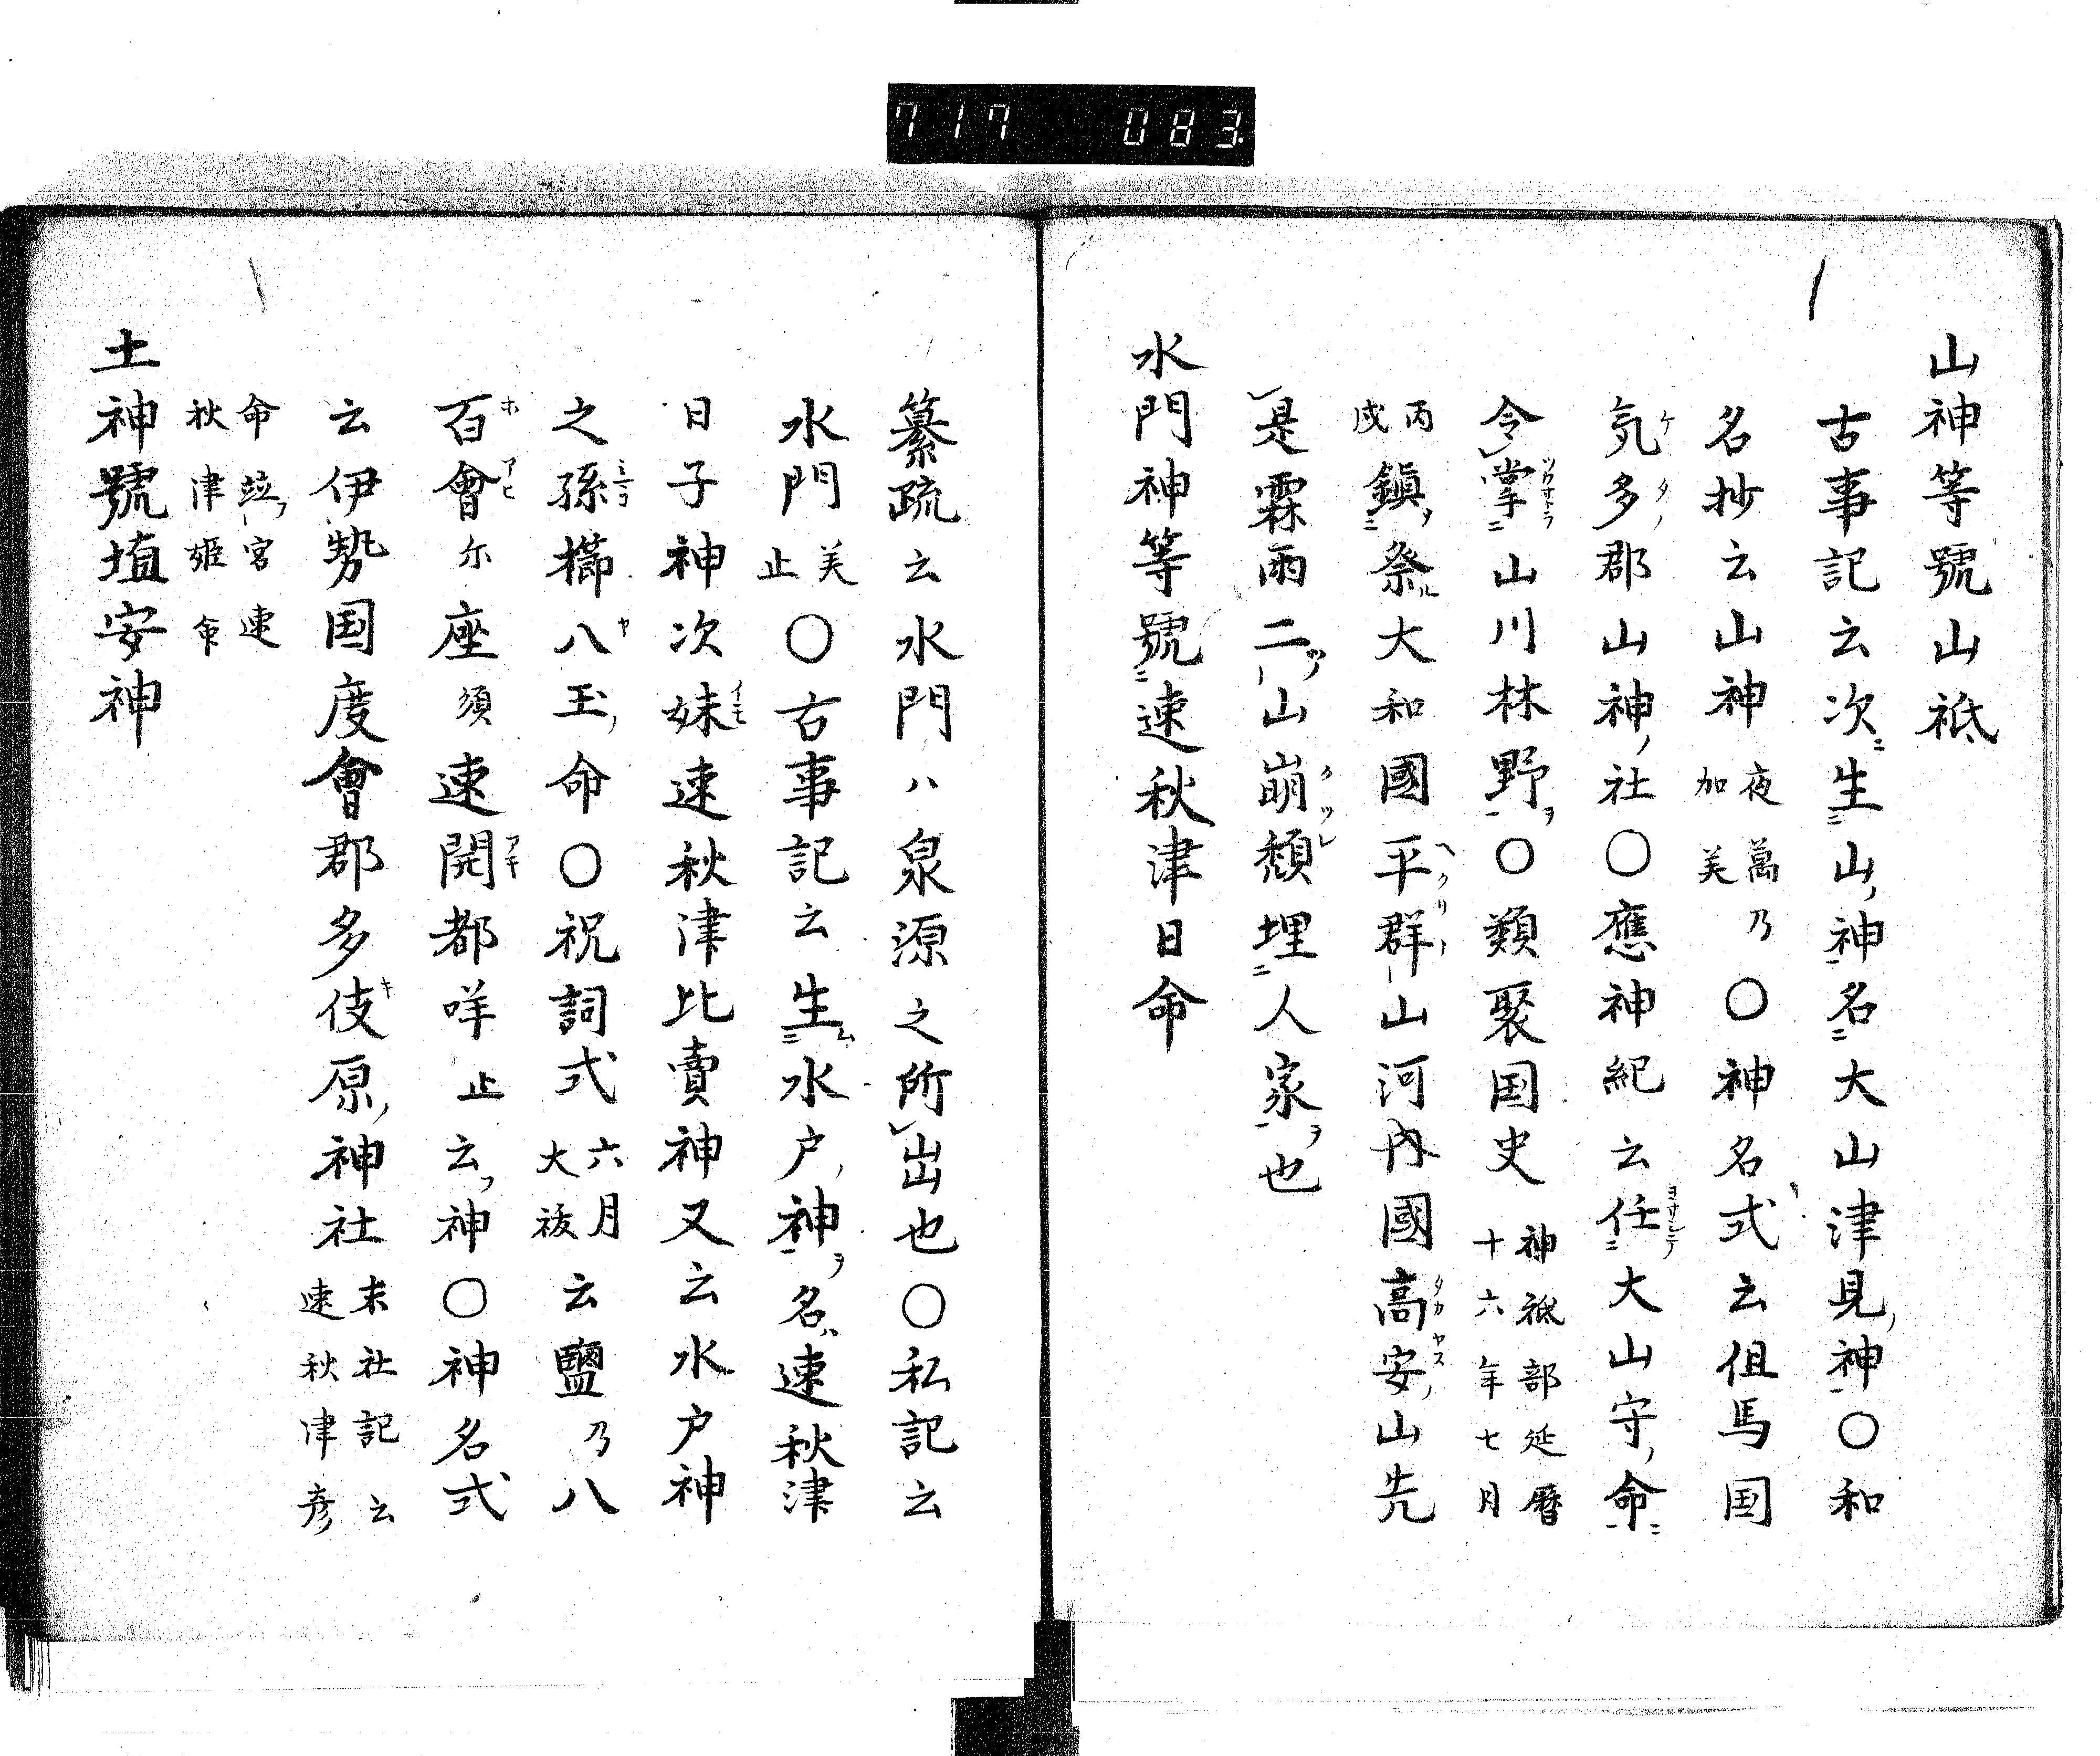 717 083
山神等號山祗
古事記云次ニ生ニ山ノ神一名ニ大山津見ノ神一〇和
名抄云山神夜萬乃加美〇神名式云但馬国
気多ノ郡山神ノ社〇應神紀云任ニ大山守ノ命ニ一
令レ掌ニ山川林野ヲ一〇類聚国史神祇部延暦十六年七月
丙戌鎮ニ祭ル大和國平群ノ山河内國高安ノ山先
レ是霖雨二ツノ山崩頽埋ニ人家ヲ一也
水門神等號ニ速秋津日命
纂疏云水門ハ泉源之所レ出也〇私記云
水門美止〇古事記云生ニム水戸ノ神一ヲ名ハ速秋津
日子神次妹速秋津比賣神又云水戸神
之孫櫛八玉ノ命〇祝詞式六月大祓云鹽乃八
百會尓座須速開都咩止云フ神〇神名式
云伊勢国度會郡多伎原ノ神社末社記云速秋津彦
命竝フ宮速秋津姫命
土神號埴安神